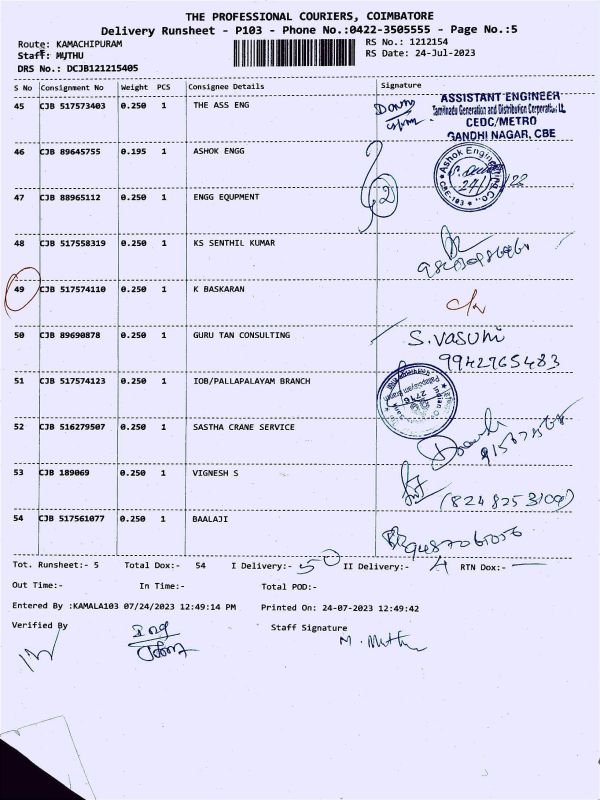 THE PROFESSIONAL COURIERS, COIMBATORE
Delivery Runsheet - P103 - Phone No.:0422-3505555 - Page No.:5
Route: KAMACHIPURAM
RS No.: 1212154
Staff: MUTHU
RS Date: 24-Jul-2023
DRS No.: DCJB121215405
S No Consignment No Weight PCS Consignee Details Signature
45 CJB 517573403 0.250 1 THE ASS ENG
ASSISTANT ENGINEER
Tamilnadu Generation and Distribution Corporation Ltd.
CEDC/METRO
GANDHI NAGAR, CBE
46 CJB 89645755 0.195 1 ASHOK ENGG
Ashok Engineering Co.
47 CJB 88965112 0.250 1 ENGG EQUPMENT
2
48 CJB 517558319 0.250 1 KS SENTHIL KUMAR
49 CJB 517574110 0.250 1 K BASKARAN
50 CJB 89690878 0.250 1 GURU TAN CONSULTING S.Vasuki
9942765483
51 CJB 517574123 0.250 1 IOB/PALLAPALAYAM BRANCH
52 CJB 516279507 0.250 1 SASTHA CRANE SERVICE
53 CJB 189069 0.250 1 VIGNESH S
(8248253109)
54 CJB 517561077 0.250 1 BAALAJI
Tot. Runsheet:- 5 Total Dox:- 54 I Delivery:- 50 II Delivery:- 4 RTN Dox:-
Out Time:- In Time:- Total POD:-
Entered By :KAMALA103 07/24/2023 12:49:14 PM Printed On: 24-07-2023 12:49:42
Verified By Staff Signature
M. Muthu